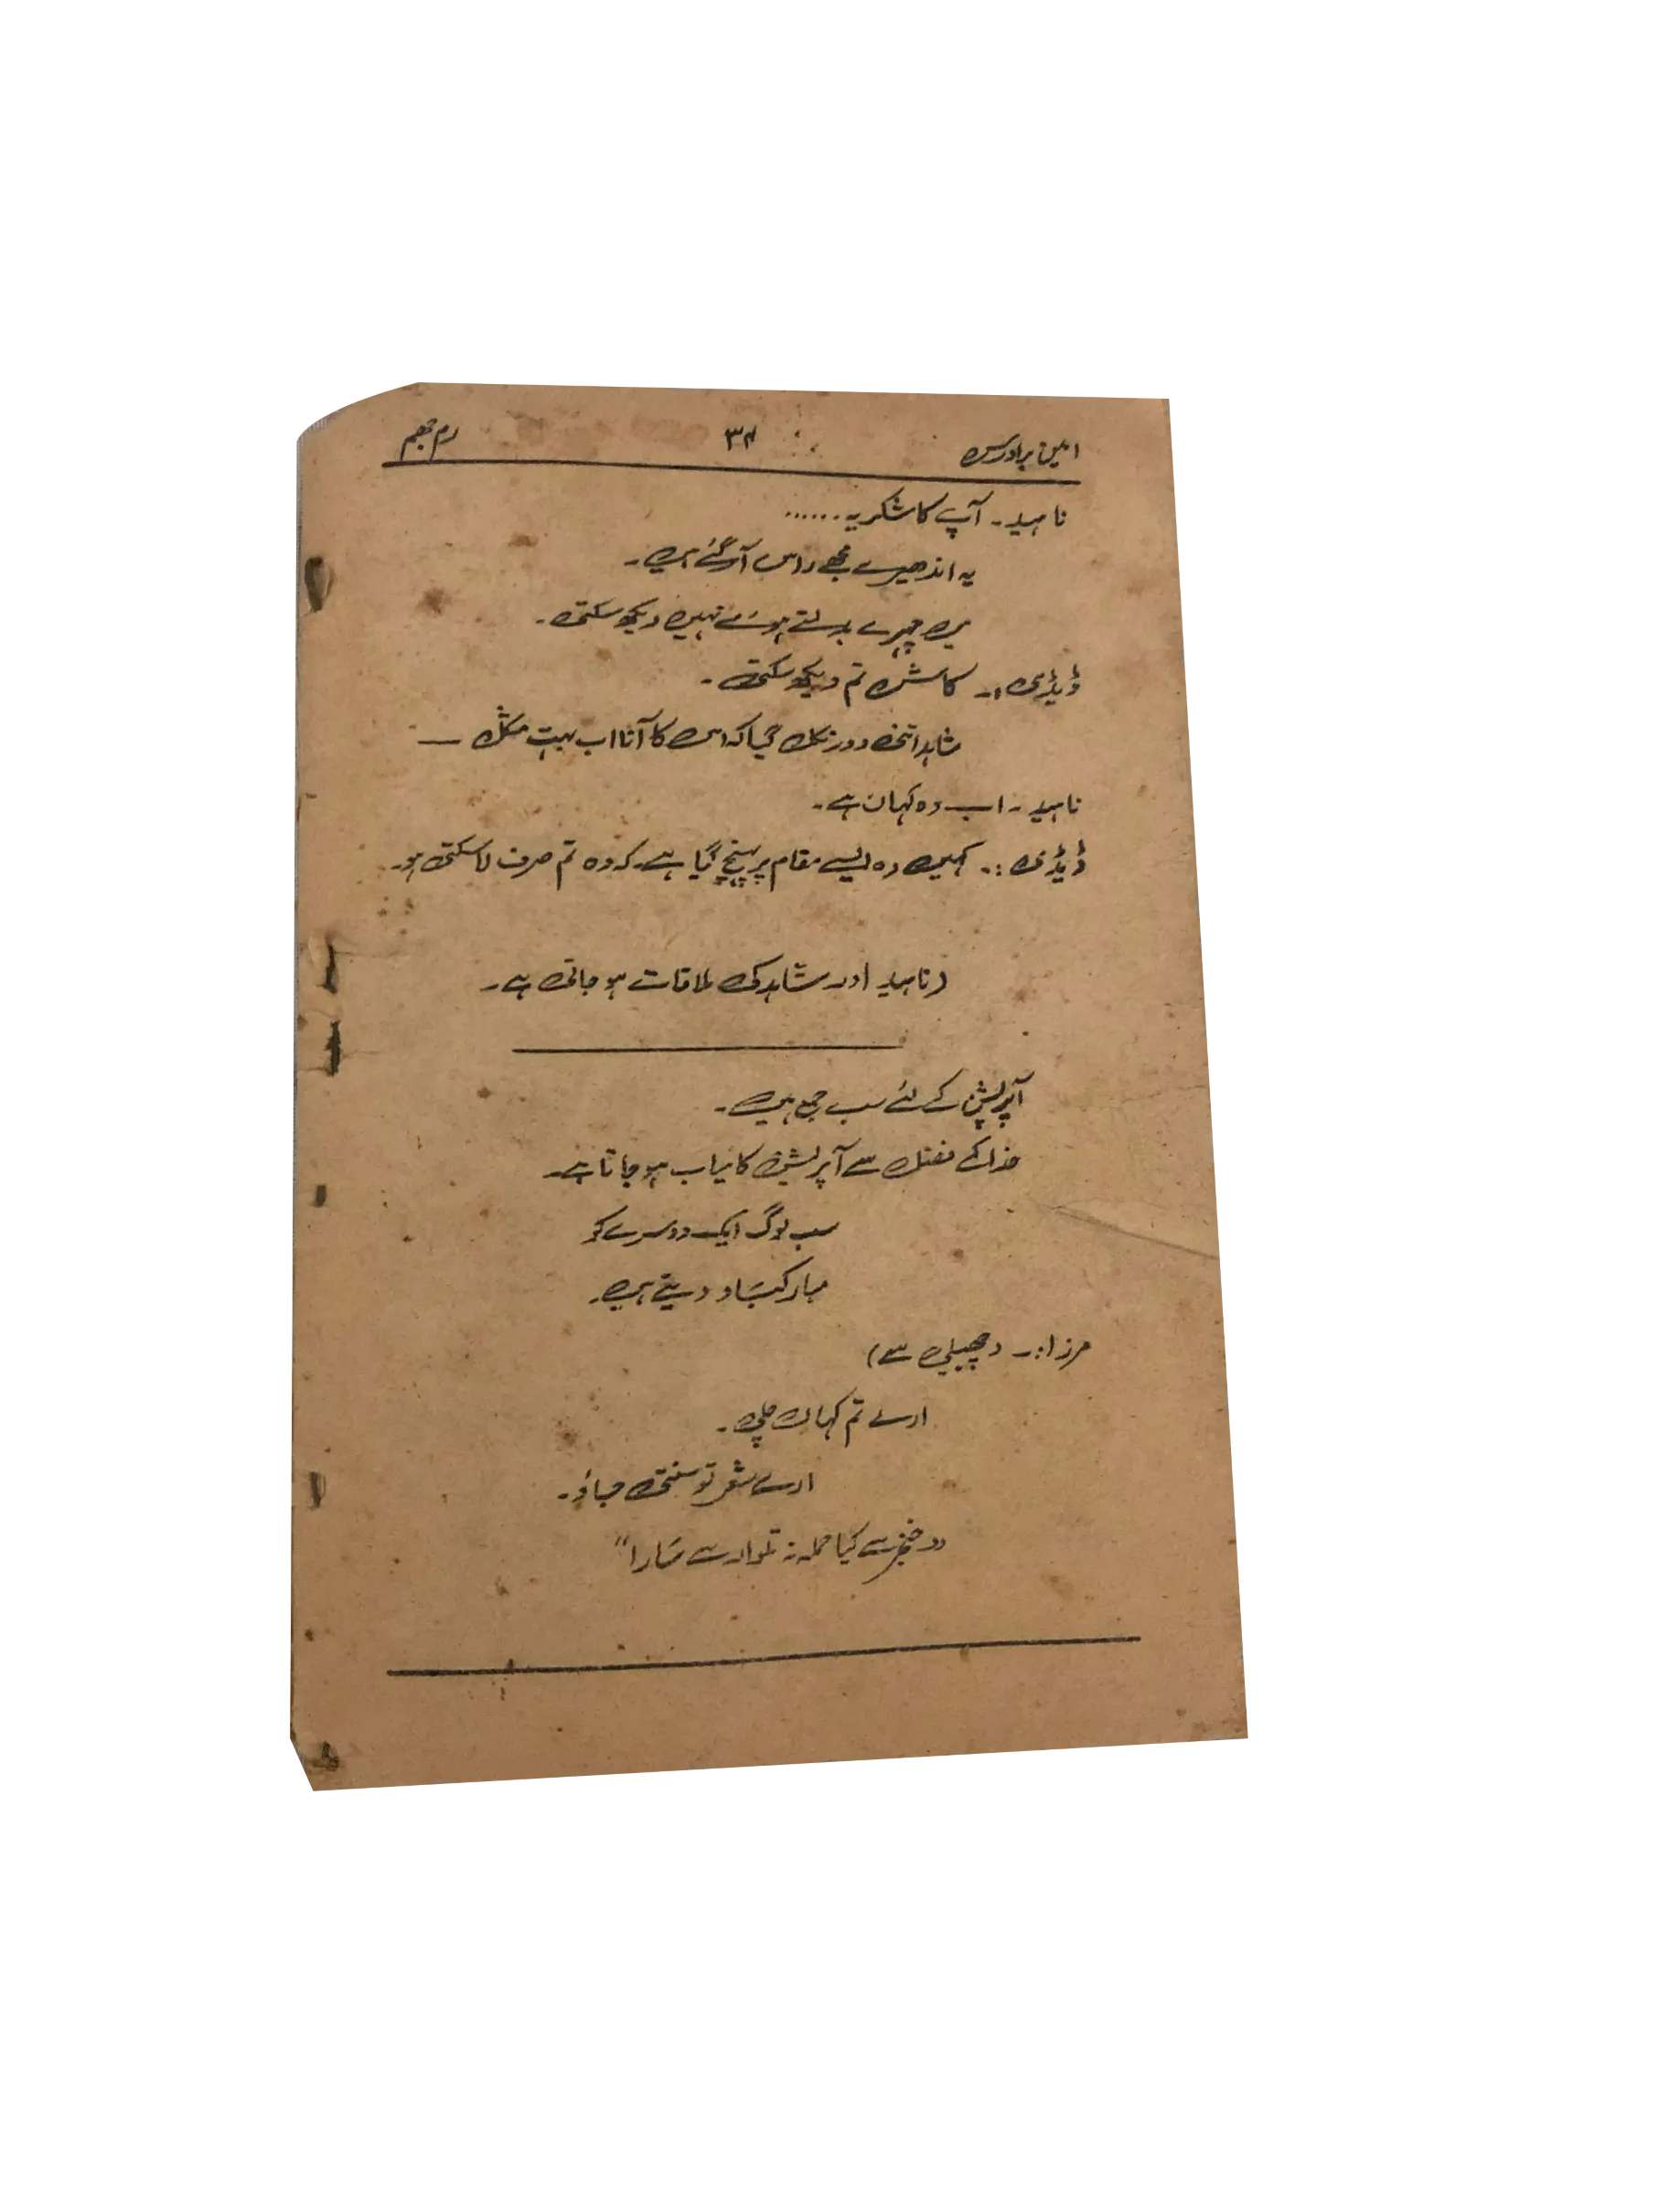 امین برادرس ۳۴ رم جھم
ناہید ۔ آپ کا شکریہ ......
یہ اندھیرے مجھے راس آ گئے ہیں ۔
میں چہرے بدلتے ہوئے نہیں دیکھ سکتی ۔
ڈیڈی :۔ کاش تم دیکھ سکتی ۔
شاہد اتنی دور نکل گیا کہ اس کا آنا اب بہت مشکل —
ناہید ۔ اب وہ کہاں ہے ۔
ڈیڈی :۔ کہیں وہ ایسے مقام پر پہنچ گیا ہے کہ وہ تم صرف لا سکتی ہو ۔
(ناہید اور شاہد کی ملاقات ہو جاتی ہے ۔
آپریشن کے لئے سب جمع ہیں ۔
خدا کے فضل سے آپریشن کامیاب ہو جاتا ہے ۔
سب لوگ ایک دوسرے کو
مبارکباد دیتے ہیں ۔
مرزا :۔ (چھبیلی سے)
ارے تم کہاں چلی ۔
ارے شعر تو سنتی جاؤ ۔
"خنجر سے کیا حملہ نہ تلوار سے مارا"